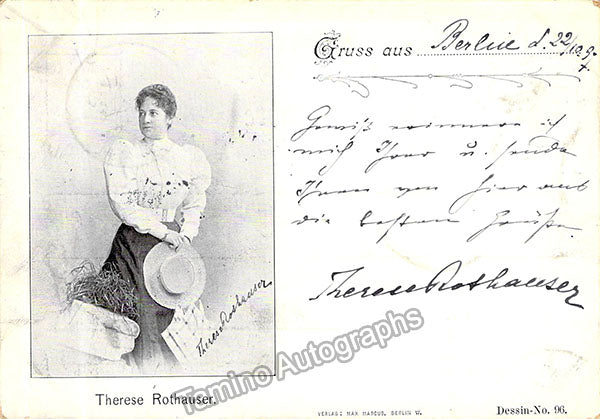 Gruss aus Berlin d. 22/10.97
Gewiß erinnere ich
mich Ihrer u. sende
Ihnen von hier aus
die besten Grüße.
Therese Rothauser
Therese Rothauser
Therese Rothauser.
VERLAG: MAX MARCUS, BERLIN W.
Dessin-No. 96.
Tamino Autographs